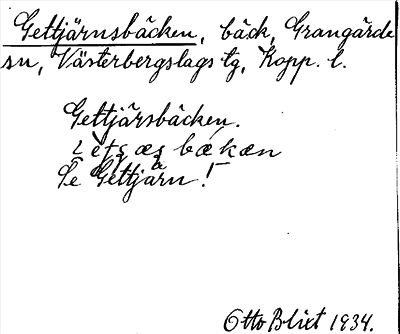 Gettjärnsbäcken, bäck, Grangärde
sn, Västerbergslags tg, Kopp. l.
Gettjärsbäcken.
bækæn
Se Gettjärn!
Otto Blixt 1934.